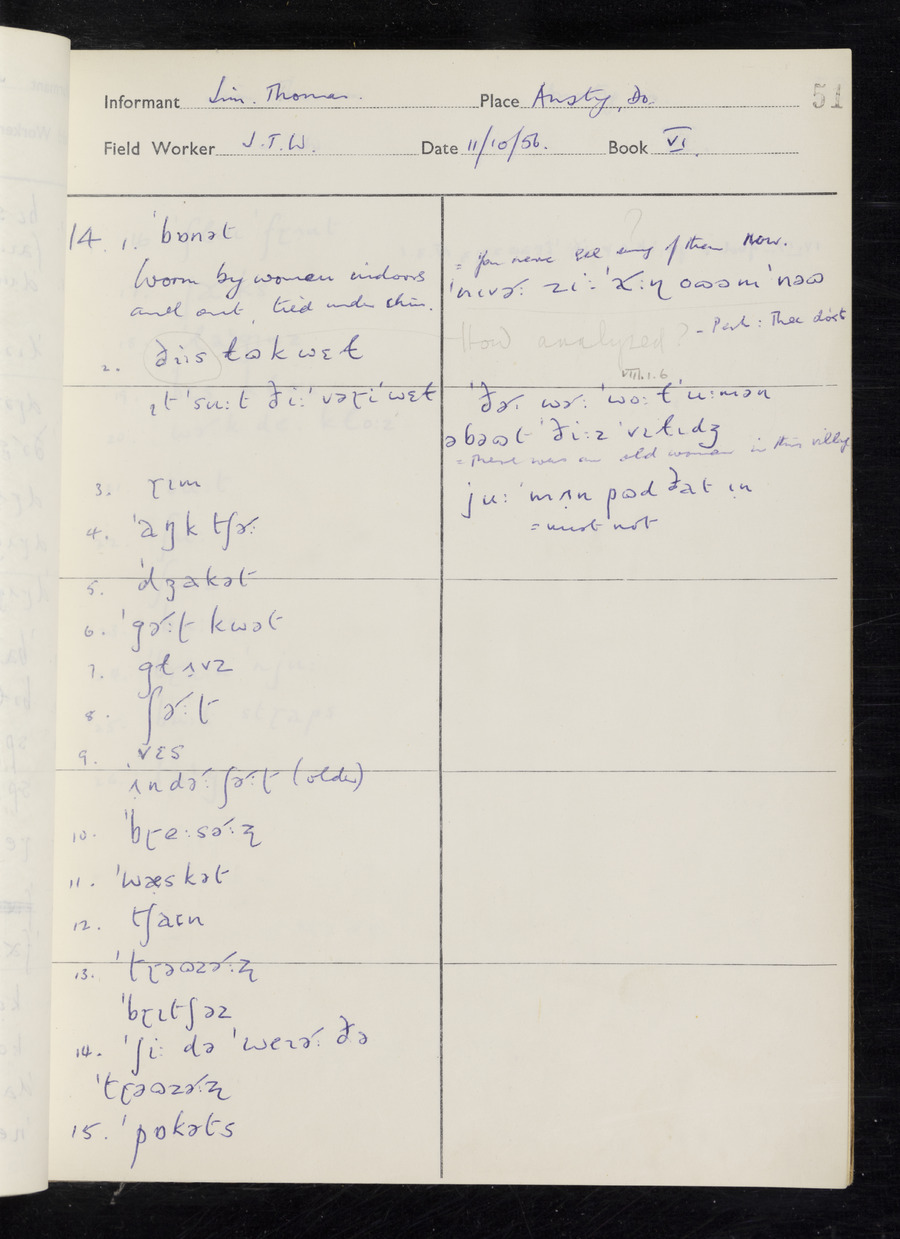 Informant Jim. Thomas. Place Ansty, Do. 51
Field Worker J.T.W. Date 11/10/56. Book VI.
14. 1. ˈbɒnət
Worn by women indoors
and out, tied under chin.
2. ðiːs ɫʊk wɛɫ
ɪt ˈsuːt ðiːˈ vəɽiˈwɛɫ
3. ɽɪm
4. ˈaŋktʃəʴː
5. ˈdʒakət
6. ˈgəʴːɫ kwət
7. gɫʌvz
8. ʃəʴːt
9. vɛs
ʌndəʴːʃəʴːt (older)
10. ˈbɽeːsəʴːʐ
11. ˈwæskət
12. tʃaɪn
13. ˈtɽəʊzəʴːʐ
ˈbɽɪtʃəz
14. ˈʃiː də ˈweɪəʴː ðə
ˈtɽəʊzəʴːʐ
15. ˈpɒkəts
?
= You never see any of them now.
ˈnɪvəʴː ziːˈ əʊəm ˈnəʊ
- Perh: Thee dost
How analysed?
VIII.1.6
ˈðəʴː wəʴː ˈwoːɫ ˈuːmən
əbəʊt ˈðiːz ˈvɪɫɪdʒ
= There was an old woman in this village
juː ˈmʌn pʊd ðat ɪn
= must not